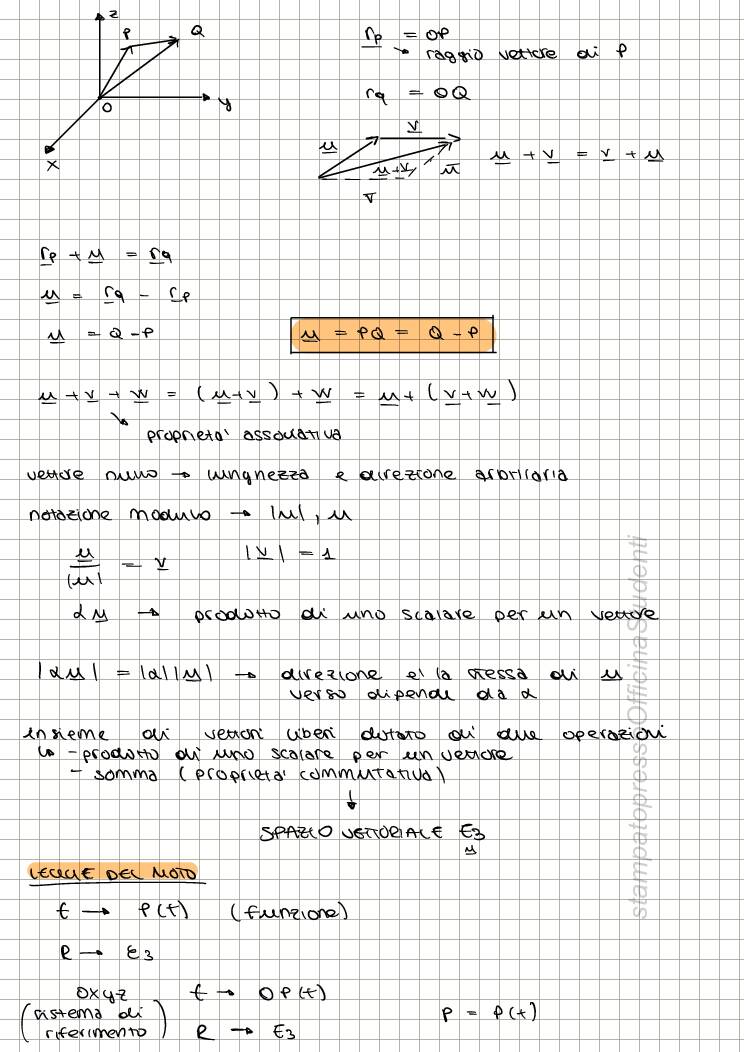 z
P
Q
O
y
x
r̲p = OP
→ raggio vettore di P
rq = OQ
u̲
v̲
u̲+v̲
ū
v̄
u̲ + v̲ = v̲ + u̲
r̲p + u̲ = r̲q
u̲ = r̲q - r̲p
u̲ = Q-P
u̲ = PQ = Q-P
u̲ + v̲ + w̲ = (u̲+v̲) + w̲ = u̲+ (v̲+w̲)
↘ proprieta' associativa
vettore nullo → lunghezza e direzione arbitraria
notazione modulo → |u|, u
u̲/|u̲| = v̲ |v̲| = 1
αu̲ → prodotto di uno scalare per un vettore
|αu̲| = |α||u̲| → direzione e' la stessa di u̲
verso dipende da α
insieme di vettori liberi dotato di due operazioni
↳ -prodotto di uno scalare per un vettore
- somma (proprieta' commutativa)
↓
SPAZIO VETTORIALE E3
u
LEGGE DEL MOTO
t → P(t) (funzione)
R → E3
oxyz t → OP(t)
(sistema di riferimento) R → E3
P = P(t)
stampatopressoOfficinaStudenti